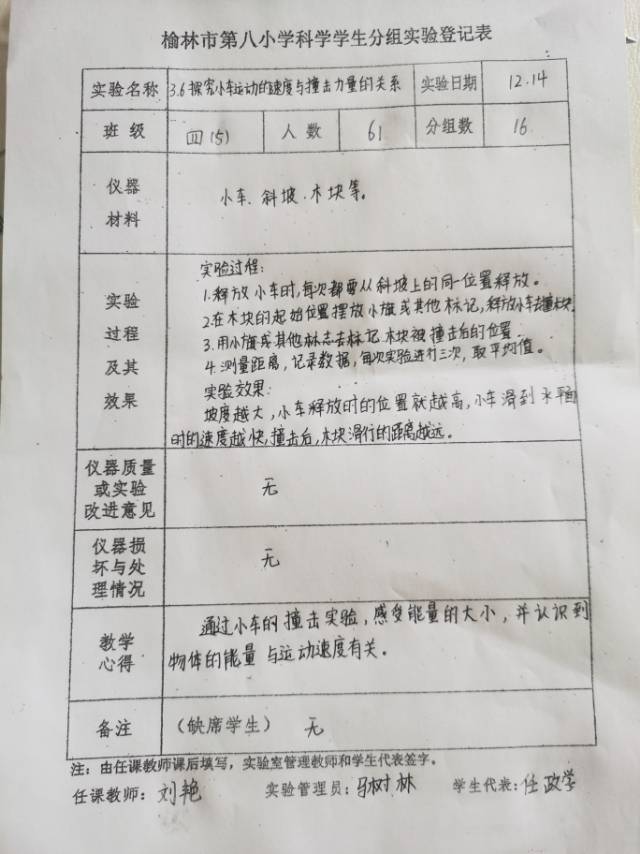 榆林市第八小学科学学生分组实验登记表
实验名称 3.6探究小车运动的速度与撞击力量的关系 实验日期 12.14
班级 四(5) 人数 61 分组数 16
仪器材料 小车、斜坡、木块等。
实验过程及其效果
实验过程:
1.释放小车时,每次都要从斜坡上的同一位置释放。
2.在木块的起始位置摆放小旗或其他标记,释放小车去撞木块.
3.用小旗或其他标志去标记木块被撞击后的位置.
4.测量距离,记录数据,每次实验进行三次,取平均值。
实验效果:
坡度越大,小车释放时的位置就越高,小车滑到水平面
时的速度越快,撞击后,木块滑行的距离越远。
仪器质量或实验改进意见 无
仪器损坏与处理情况 无
教学心得
通过小车的撞击实验,感受能量的大小,并认识到
物体的能量与运动速度有关。
备注 (缺席学生) 无
注:由任课教师课后填写,实验室管理教师和学生代表签字。
任课教师:刘艳 实验管理员:马树林 学生代表:任政学